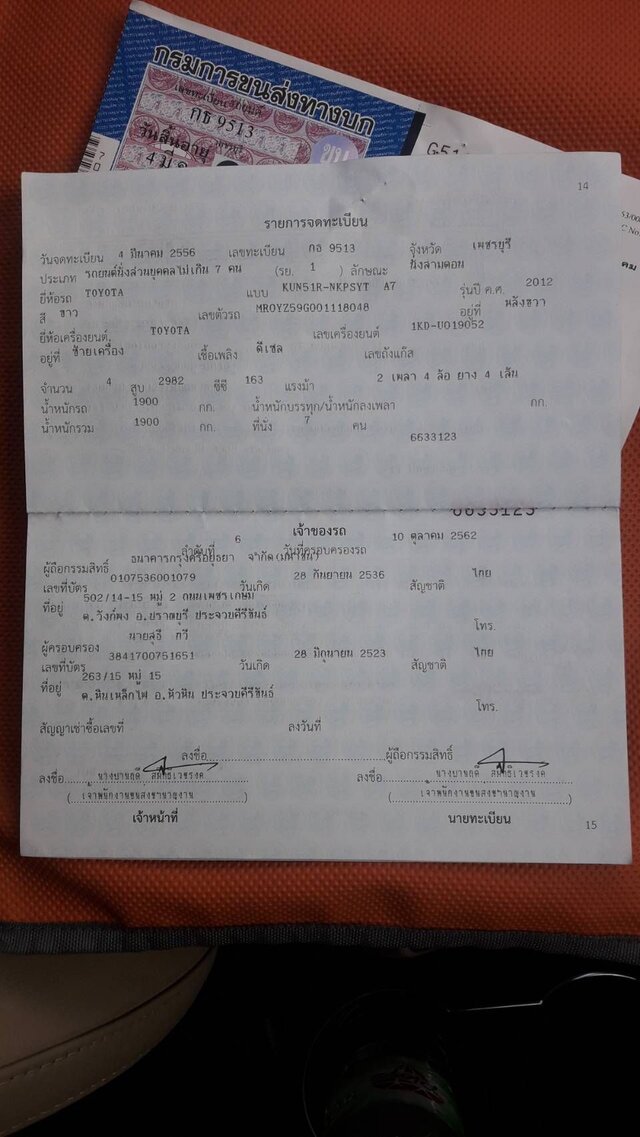 กรมการขนส่งทางบก
เลขทะเบียน
กธ 9513
วันสิ้นอายุ
4 มี.ค.
G51
14
รายการจดทะเบียน
วันจดทะเบียน 4 มีนาคม 2556 เลขทะเบียน กธ 9513 จังหวัด เพชรบุรี
ประเภท รถยนต์นั่งส่วนบุคคลไม่เกิน 7 คน (รย. 1 ) ลักษณะ นั่งสามตอน
ยี่ห้อรถ TOYOTA แบบ KUN51R-NKPSYT A7 รุ่นปี ค.ศ. 2012
สี ขาว เลขตัวรถ MR0YZ59G001118048 อยู่ที่ หลังขวา
ยี่ห้อเครื่องยนต์ TOYOTA เลขเครื่องยนต์ 1KD-U019052
อยู่ที่ ซ้ายเครื่อง เชื้อเพลิง ดีเซล เลขถังแก๊ส
จำนวน 4 สูบ 2982 ซีซี 163 แรงม้า 2 เพลา 4 ล้อ ยาง 4 เส้น
น้ำหนักรถ 1900 กก. น้ำหนักบรรทุก/น้ำหนักลงเพลา กก.
น้ำหนักรวม 1900 กก. ที่นั่ง 7 คน
6633123
6633123
เจ้าของรถ
ลำดับที่ 6 วันที่ครอบครองรถ 10 ตุลาคม 2562
ผู้ถือกรรมสิทธิ์ ธนาคารกรุงศรีอยุธยา จำกัด(มหาชน)
เลขที่บัตร 0107536001079 วันเกิด 28 กันยายน 2536 สัญชาติ ไทย
ที่อยู่ 502/14-15 หมู่ 2 ถนนเพชรเกษม
ต.วังก์พง อ.ปราณบุรี ประจวบคีรีขันธ์ โทร.
ผู้ครอบครอง นายสุธี ทวี
เลขที่บัตร 3841700751651 วันเกิด 28 มิถุนายน 2523 สัญชาติ ไทย
ที่อยู่ 263/15 หมู่ 15
ต.หินเหล็กไฟ อ.หัวหิน ประจวบคีรีขันธ์ โทร.
สัญญาเช่าซื้อเลขที่ ลงวันที่
ลงชื่อ ผู้ถือกรรมสิทธิ์
ลงชื่อ ลงชื่อ
(เจ้าพนักงานขนส่งชำนาญงาน) (เจ้าพนักงานขนส่งชำนาญงาน)
เจ้าหน้าที่ นายทะเบียน
15